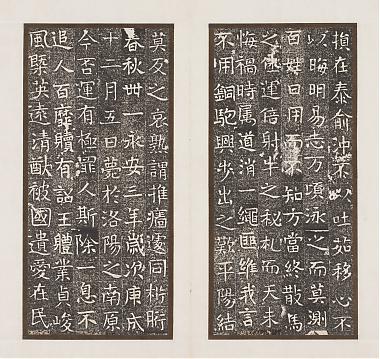 損在泰俞沖不以吐茹移心不
以晦明易志万頃泳之而莫測
百姓日用而不知方當終散馬
之運倍射牛之秘札而天未
悔禍時属道消一繩匪維我言
不用銅駝興步出之歎平陽結
莫反之哀熟謂遂同析胻
春秋卌一永安三年歲次庚戌
十二月五日薨於洛陽之南原
今否運有極罪人斯除一息不
追人百靡贖有詔王體業貞峻
風槩英遠清猷被國遺愛在民